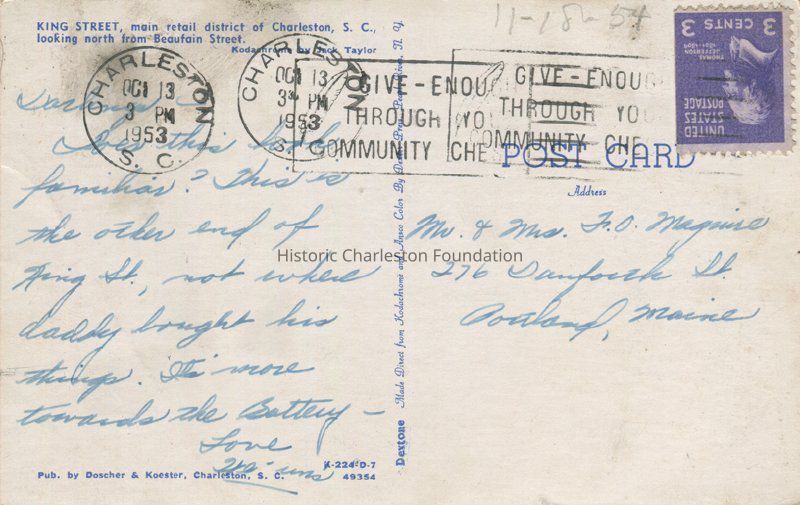 KING STREET, main retail district of Charleston, S. C.,
looking north from Beaufain Street.
Kodachrome by Jack Taylor
11-18-54
CHARLESTON
OCT 13
3 PM
1953
S. C.
CHARLESTON
OCT 13
3 PM
1953
S. C.
GIVE-ENOU
THROUGH YO
COMMUNITY CHE
GIVE-ENOUG
THROUGH YOU
COMMUNITY CHE
3 CENTS 3
THOMAS
JEFFERSON
1801-1809
UNITED
STATES
POSTAGE
POST CARD
Address
Does this look
familiar? This is
the other end of
King St., not where
daddy bought his
things. It's more
towards the Battery –
Love
We'uns
Mr. & Mrs. F. O. Maguire
276 Danforth St.
Portland, Maine
Historic Charleston Foundation
Dextone Made Direct from Kodachrome and Ansco Color By Dexter Press, Pearl River, N. Y.
K-224-D-7
Pub. by Doscher & Koester, Charleston, S. C. 49354